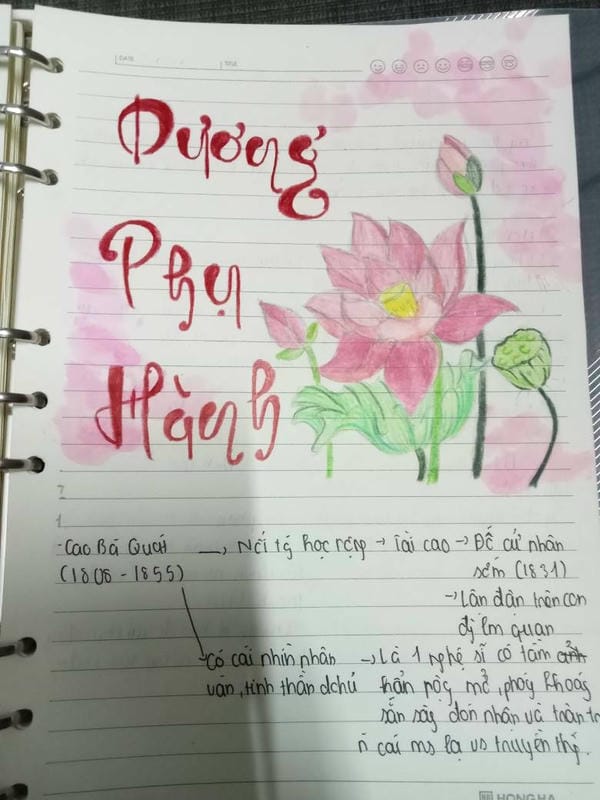 DATE / / TITLE
Dương
Phụ
Hành
- Cao Bá Quát → Nổi tg học rộng → Tài cao → Đỗ cử nhân
(1808 - 1855) sớm (1831)
→ Lận đận trên con
đg lm quan
→ Có cái nhìn nhân → Là 1 nghệ sĩ có tâm
văn, tinh thần dchủ hồn rộg mở, phóg khoág
sẵn sàg đón nhận và trân tr
cái ms lạ vs truyền thg.
HONG HA